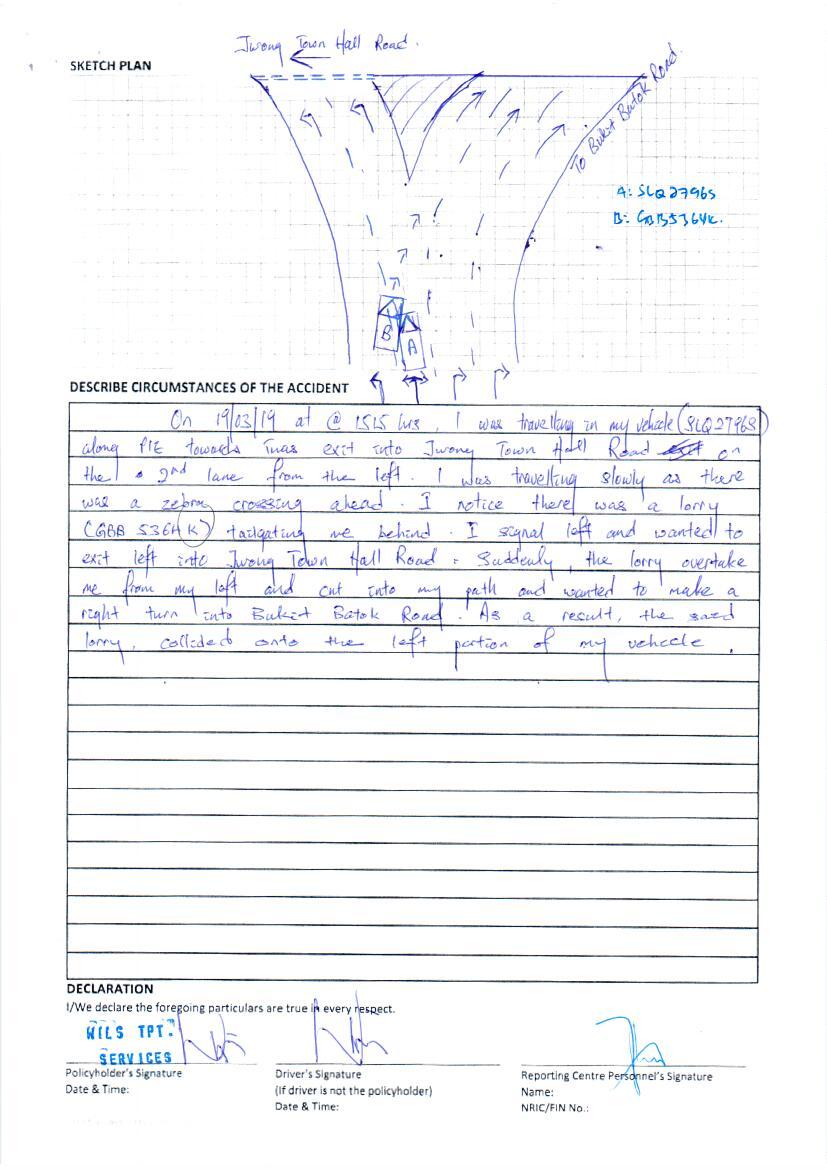 Jurong Town Hall Road.
SKETCH PLAN
To Bukit Batok Road.
A: SLQ2796S
B: GBB5364K.
B
A
DESCRIBE CIRCUMSTANCES OF THE ACCIDENT
On 19/03/19 at @ 1515 hrs, I was travelling in my vehicle (SLQ2796S)
along PIE towards Tuas exit into Jurong Town Hall Road exit on
the 2nd lane from the left. I was travelling slowly as there
was a zebra crossing ahead. I notice there was a lorry
(GBB 5364K) tailgating me behind. I signal left and wanted to
exit left into Jurong Town Hall Road. Suddenly, the lorry overtake
me from my left and cut into my path and wanted to make a
right turn into Bukit Batok Road. As a result, the said
lorry, collided onto the left portion of my vehicle.
DECLARATION
I/We declare the foregoing particulars are true in every respect.
WILS TPT.
SERVICES
Policyholder's Signature
Date & Time:
Driver's Signature
(If driver is not the policyholder)
Date & Time:
Reporting Centre Personnel's Signature
Name:
NRIC/FIN No.: